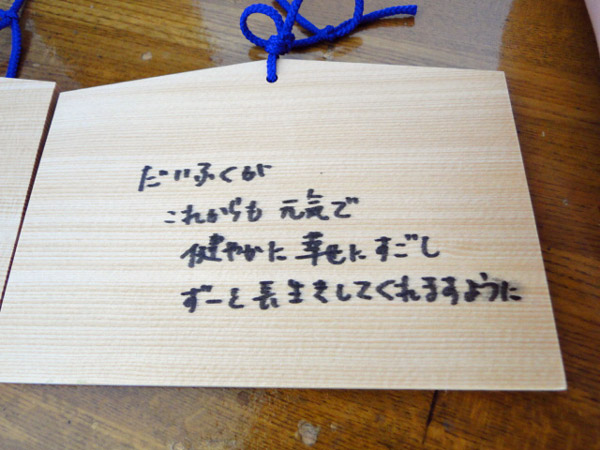 だいふくが
これからも 元気で
健やかに 幸せに すごし
ずーと 長生きしてくれますように